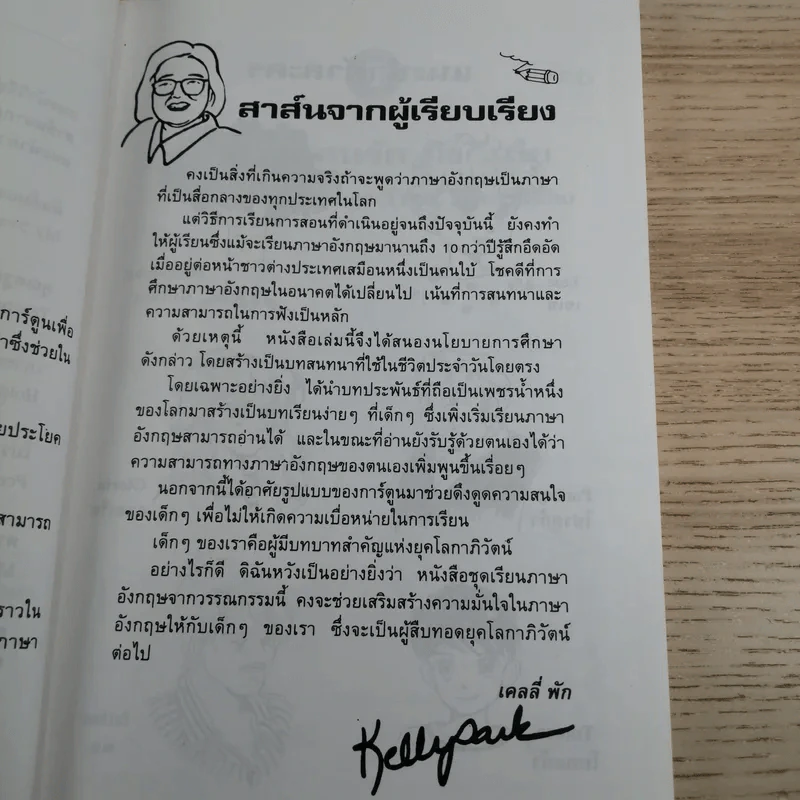 สาส์นจากผู้เรียบเรียง
คงเป็นสิ่งที่เกินความจริงถ้าจะพูดว่าภาษาอังกฤษเป็นภาษา
ที่เป็นสื่อกลางของทุกประเทศในโลก
แต่วิธีการเรียนการสอนที่ดำเนินอยู่จนถึงปัจจุบันนี้ ยังคงทำ
ให้ผู้เรียนซึ่งแม้จะเรียนภาษาอังกฤษมานานถึง 10 กว่าปีรู้สึกอึดอัด
เมื่ออยู่ต่อหน้าชาวต่างประเทศเสมือนหนึ่งเป็นคนใบ้ โชคดีที่การ
ศึกษาภาษาอังกฤษในอนาคตได้เปลี่ยนไป เน้นที่การสนทนาและ
ความสามารถในการฟังเป็นหลัก
ด้วยเหตุนี้ หนังสือเล่มนี้จึงได้สนองนโยบายการศึกษา
ดังกล่าว โดยสร้างเป็นบทสนทนาที่ใช้ในชีวิตประจำวันโดยตรง
โดยเฉพาะอย่างยิ่ง ได้นำบทประพันธ์ที่ถือเป็นเพชรน้ำหนึ่ง
ของโลกมาสร้างเป็นบทเรียนง่ายๆ ที่เด็กๆ ซึ่งเพิ่งเริ่มเรียนภาษา
อังกฤษสามารถอ่านได้ และในขณะที่อ่านยังรับรู้ด้วยตนเองได้ว่า
ความสามารถทางภาษาอังกฤษของตนเองเพิ่มพูนขึ้นเรื่อยๆ
นอกจากนี้ได้อาศัยรูปแบบของการ์ตูนมาช่วยดึงดูดความสนใจ
ของเด็กๆ เพื่อไม่ให้เกิดความเบื่อหน่ายในการเรียน
เด็กๆ ของเราคือผู้มีบทบาทสำคัญแห่งยุคโลกาภิวัตน์
อย่างไรก็ดี ดิฉันหวังเป็นอย่างยิ่งว่า หนังสือชุดเรียนภาษา
อังกฤษจากวรรณกรรมนี้ คงจะช่วยเสริมสร้างความมั่นใจในภาษา
อังกฤษให้กับเด็กๆ ของเรา ซึ่งจะเป็นผู้สืบทอดยุคโลกาภิวัตน์
ต่อไป
เคลลี่ พัก
Kelly Park
การ์ตูนเพื่อ
าซึ่งช่วยใน
ยประโยค
สามารถ
ราวใน
ภาษา